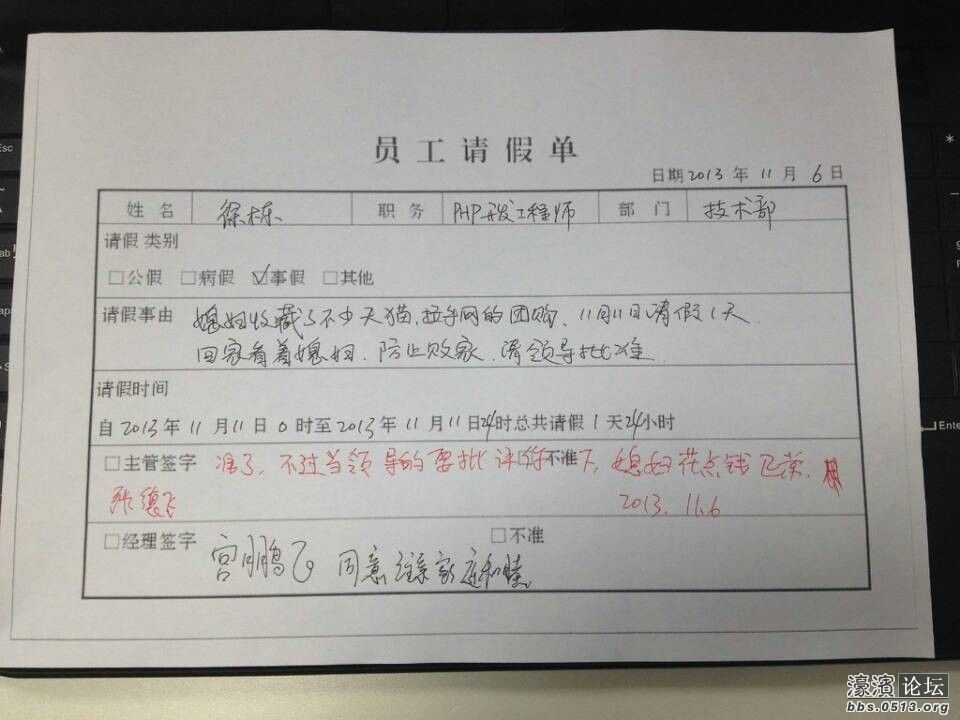 员工请假单
日期2013年11月6日
姓名 徐栋 职务 PHP开发工程师 部门 技术部
请假类别
□公假 □病假 ☑事假 □其他
请假事由 媳妇收藏了不少天猫,拉手网的团购、11月11日请假1天.
回家看着媳妇.防止败家.请领导批准.
请假时间
自2013年11月11日0时至2013年11月11日24时总共请假1天24小时
□主管签字 准了、不过当领导的要批评你 □不准 下,媳妇花点钱
张德飞 2013.11.6
□经理签字 □不准
宫鹏飞 同意 家庭和睦。
濠滨论坛
bbs.0513.org
Esc
Enter